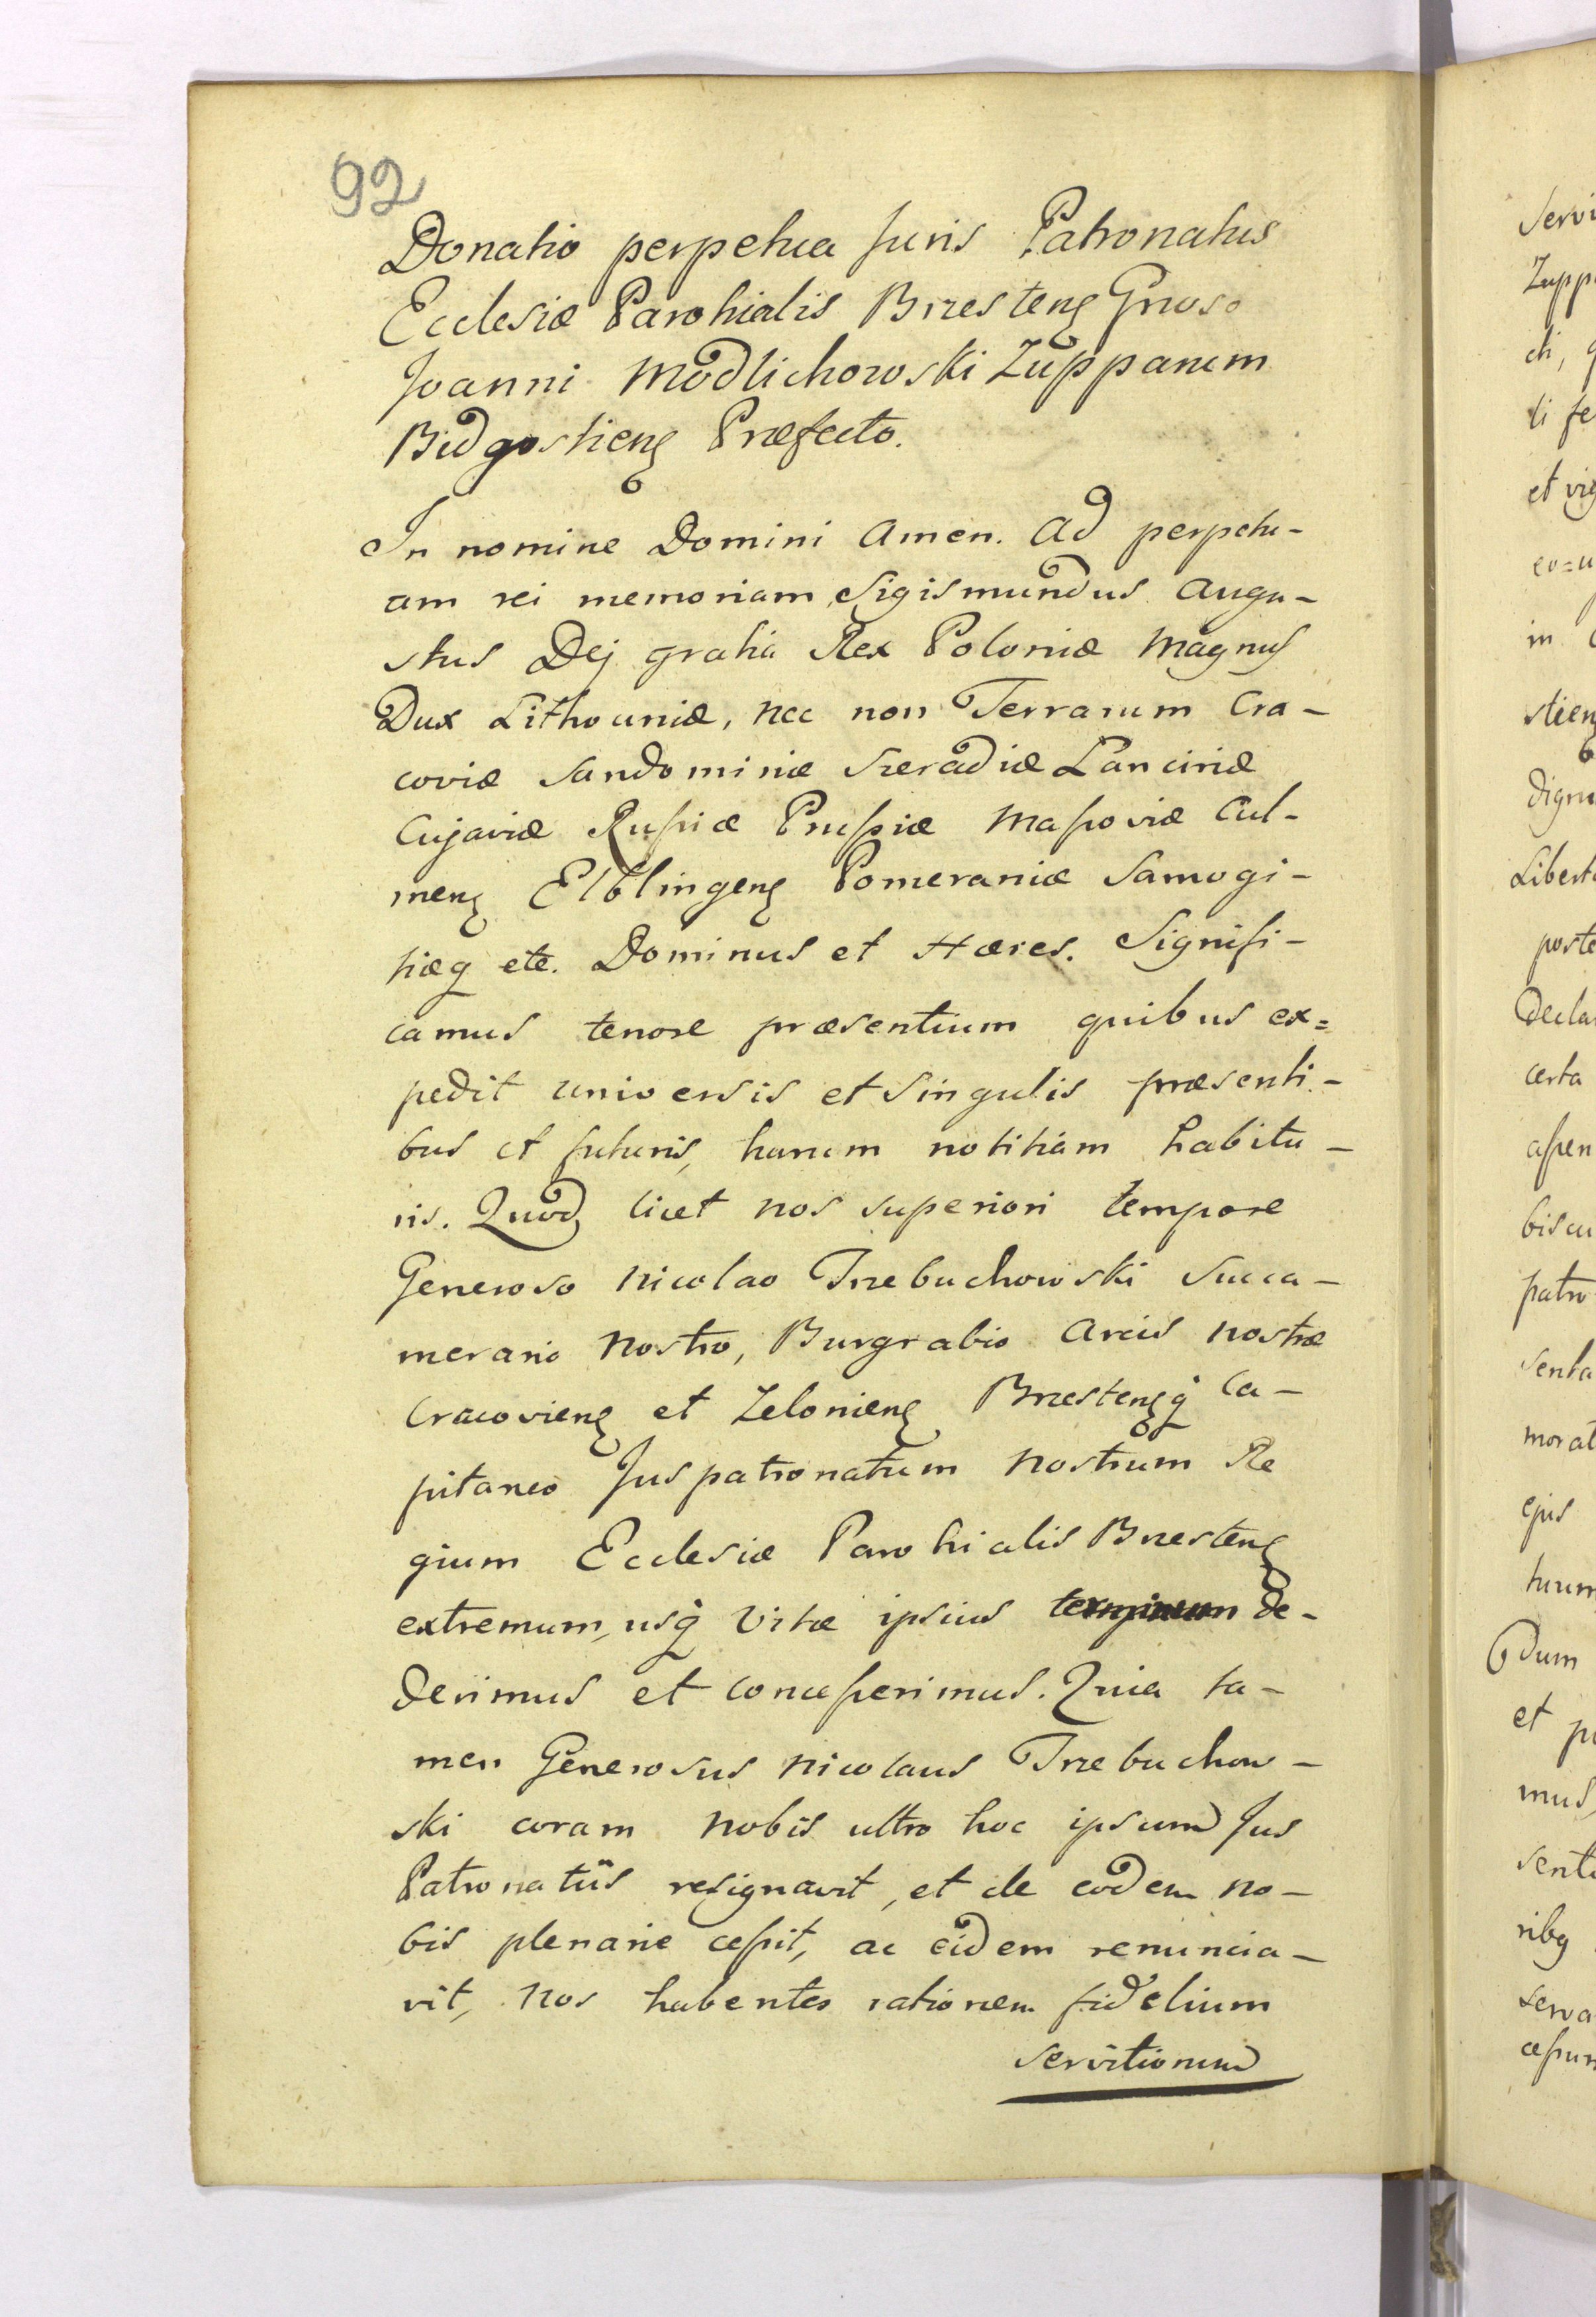 92
Donatio perpetua Juris Patronatus
Ecclesiæ Parohialis Brzestenȝ Gnoso
Joanni Modlichowski Zupparum
Bidgostienȝ Præfecto.
In nomine Domini Amen. Ad perpetu-
am rei memoriam Sigismundus Augu-
stus Dej gratia Rex Poloniæ Magnus
Dux Lithvaniæ, nec non Terrarum Cra-
coviæ Sandomiriæ Szeradiæ Lanciciæ
Cujaviæ Rußiæ Prußiæ Maßoviæ Cul-
menȝ Elblingenȝ Pomeraniæ Samogi-
tiæq etc. Dominus et Hæres. Signifi-
camus tenore præsentium quibus ex=
pedit universis et singulis præsenti-
bus et futuris, harum notitiam habitu-
ris. Quod, licet nos superiori tempore
Generoso Nicolao Trzebuchowski Succa-
merario Nostro, Burgrabio Arcis nostræ
Cracovienȝ et Zelonienȝ Brzestenȝq Ca-
pitaneo Juspatronatum Nostrum Re
gium Ecclesiæ Parohialis Brzestenȝ
extremum, usq Vitæ ipsius terminum de-
derimus et conceßerimus. Quia ta-
men Generosus Nicolaus Trzebuchow-
ski coram Nobis ultro hoc ipsum Jus
Patronatûs resignavit, et de eodem No-
bis plenarie ceßit, ac eidem renuncia-
vit, Nos habentes rationem fidelium
servitiorum